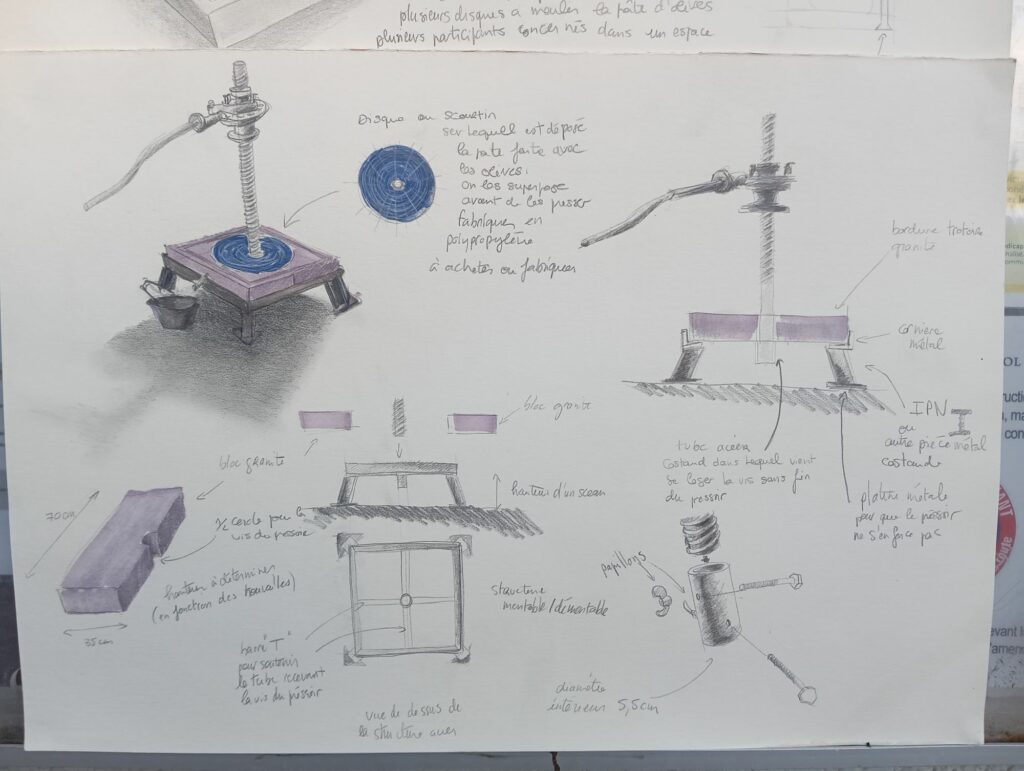 plusieurs disques à meuler la pâte d'olives
plusieurs participants concernés dans un espace
Disque ou scourtin
sur lequel est déposé
la pate faite avec
les olives.
on les superpose
avant de les presser
fabriques en
polypropylène
à acheter ou fabriquer
bordure trotoire
granite
cornière
métal
IPN
ou
autre pièce métal
costaude
platine métale
pour que le pressoir
ne s'enfonce pas
tube aciéra
costaud dans lequel vient
se loger la vis sans fin
du pressoir
bloc granite
bloc granite
hauteur d'un sceau
70cm
1/2 cercle pour la
vis du pressoir
hauteur à déterminer
(en fonction des trouvailles)
35cm
structure
montable/démontable
barre "T"
pour soutenir
le tube recevant
la vis du pressoir
vue de dessus de
la structure acier
papillons
diamètre
intérieur 5,5cm